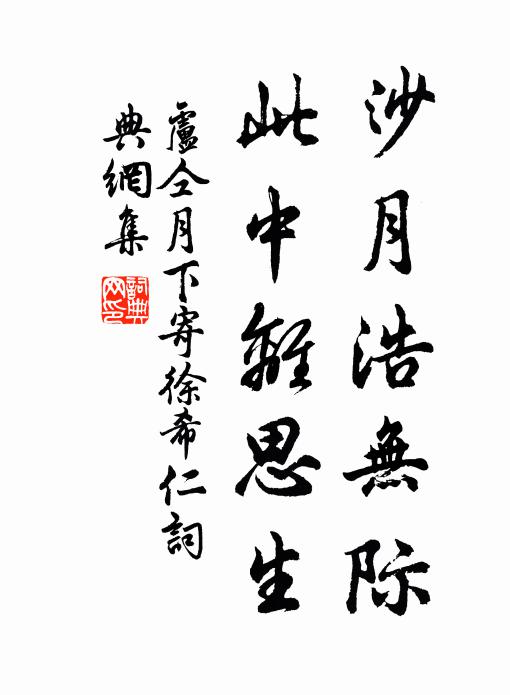 沙月浩無际
此中離思生
盧仝月下寄徐希仁詞
典網集
詞典
网印